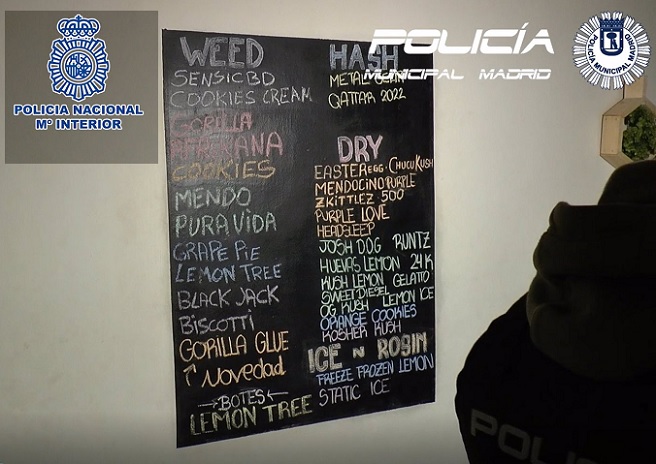 POLICIA NACIONAL
Mº INTERIOR
POLICÍA
MUNICIPAL MADRID
POLICÍA MUNICIPAL MADRID
WEED
SENSICBD
COOKIES CREAM
GORILLA
AFRICANA
COOKIES
MENDO
PURA VIDA
GRAPE PIE
LEMON TREE
BLACK JACK
BISCOTTI
GORILLA GLUE
↑ Novedad
→BOTES←
LEMON TREE
HASH
METAL
QATTAR 2022
DRY
EASTER EGG · CHUCU KUSH
MENDOCINO PURPLE
ZKITTLEZ 500
PURPLE LOVE
HEADSLEEP
JOSH DOG RUNTZ
HUEVAS LEMON 24K
KUSH LEMON GELATO
SWEET DIESEL
OG KUSH LEMON ICE
ORANGE COOKIES
KOSHER KUSH
ICE N ROSIN
FREEZE FROZEN LEMON
STATIC ICE
POLI